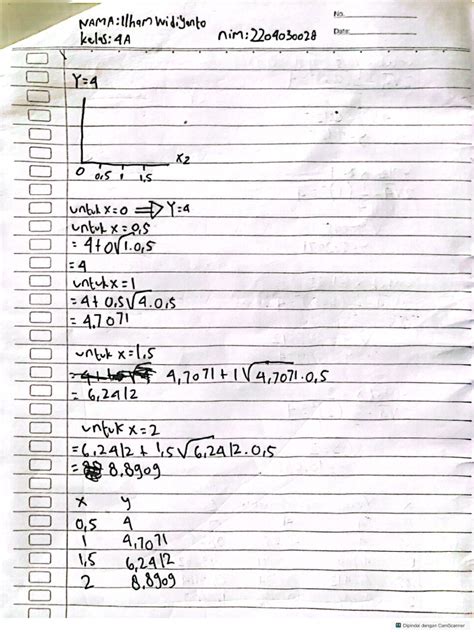 No.
NAMA: Ilham Widiyanto
Date:
Kelas: 4A
nim: 2204030028
Y=4
X2
0 0,5 1 1,5
untuk x=0 ⇒ Y=4
untuk x=0,5
= 4+0√1.0,5
= 4
untuk x=1
= 4+0,5√4.0,5
= 4,7071
untuk x=1,5
= 4,7071+1√4,7071.0,5
= 6,2412
untuk x=2
= 6,2412 + 1,5√6,2412.0,5
= 8,8909
x y
0,5 4
1 4,7071
1,5 6,2412
2 8,8909
Dipindai dengan CamScanner